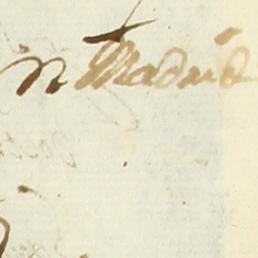 n Madrid